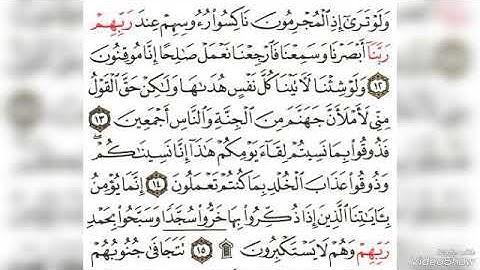 وَلَوْ تَرَىٰٓ إِذِ ٱلْمُجْرِمُونَ نَاكِسُوا۟ رُءُوسِهِمْ عِندَ رَبِّهِمْ
رَبَّنَآ أَبْصَرْنَا وَسَمِعْنَا فَٱرْجِعْنَا نَعْمَلْ صَٰلِحًا إِنَّا مُوقِنُونَ
١٢ وَلَوْ شِئْنَا لَءَاتَيْنَا كُلَّ نَفْسٍ هُدَىٰهَا وَلَٰكِنْ حَقَّ ٱلْقَوْلُ
مِنِّى لَأَمْلَأَنَّ جَهَنَّمَ مِنَ ٱلْجِنَّةِ وَٱلنَّاسِ أَجْمَعِينَ ١٣
فَذُوقُوا۟ بِمَا نَسِيتُمْ لِقَآءَ يَوْمِكُمْ هَٰذَآ إِنَّا نَسِينَٰكُمْ ۖ
وَذُوقُوا۟ عَذَابَ ٱلْخُلْدِ بِمَا كُنتُمْ تَعْمَلُونَ ١٤ إِنَّمَا يُؤْمِنُ
بِـَٔايَٰتِنَا ٱلَّذِينَ إِذَا ذُكِّرُوا۟ بِهَا خَرُّوا۟ سُجَّدًا وَسَبَّحُوا۟ بِحَمْدِ
رَبِّهِمْ وَهُمْ لَا يَسْتَكْبِرُونَ ۩ ١٥ تَتَجَافَىٰ جُنُوبُهُمْ
VideoShow